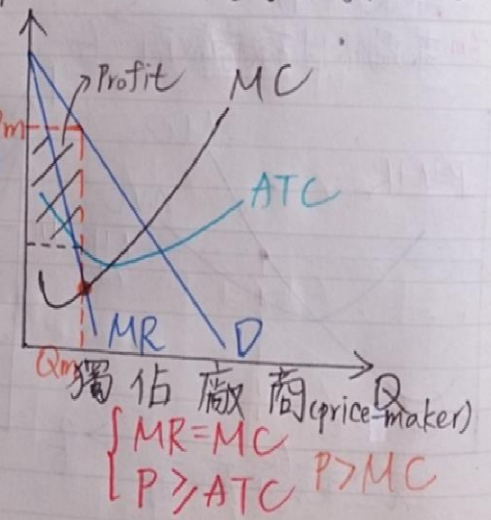 Profit
MC
Pm
ATC
MR
D
Qm
Q
獨佔廠商(price maker)
MR=MC
P≥ATC P>MC